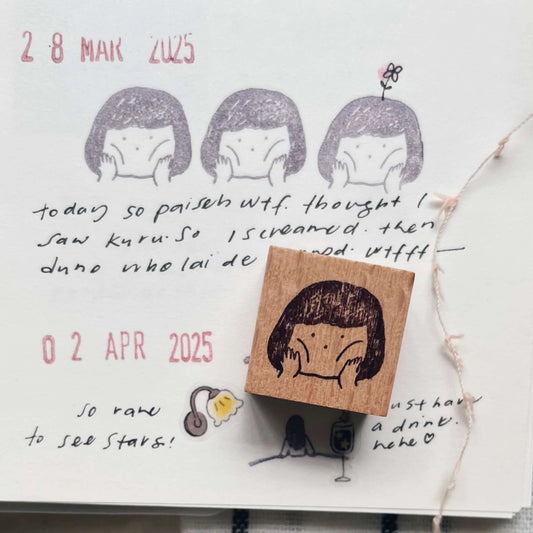 28 MAR 2025
today so paiseh wtf. thought I
saw kuru. so I screamed. then
duno who lai de wtfff—
02 APR 2025
so rare
to see stars!
just have
a drink.
hehe♡